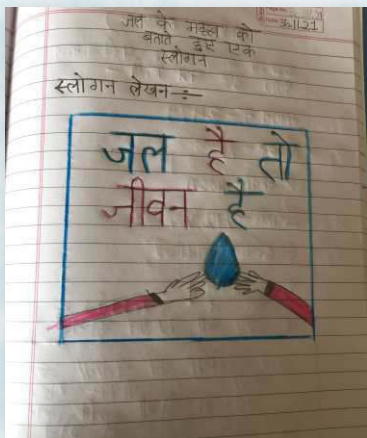 30/11/21
जल के महत्व को
बताते हुए एक
स्लोगन
स्लोगन लेखन ÷
जल है तो
जीवन है